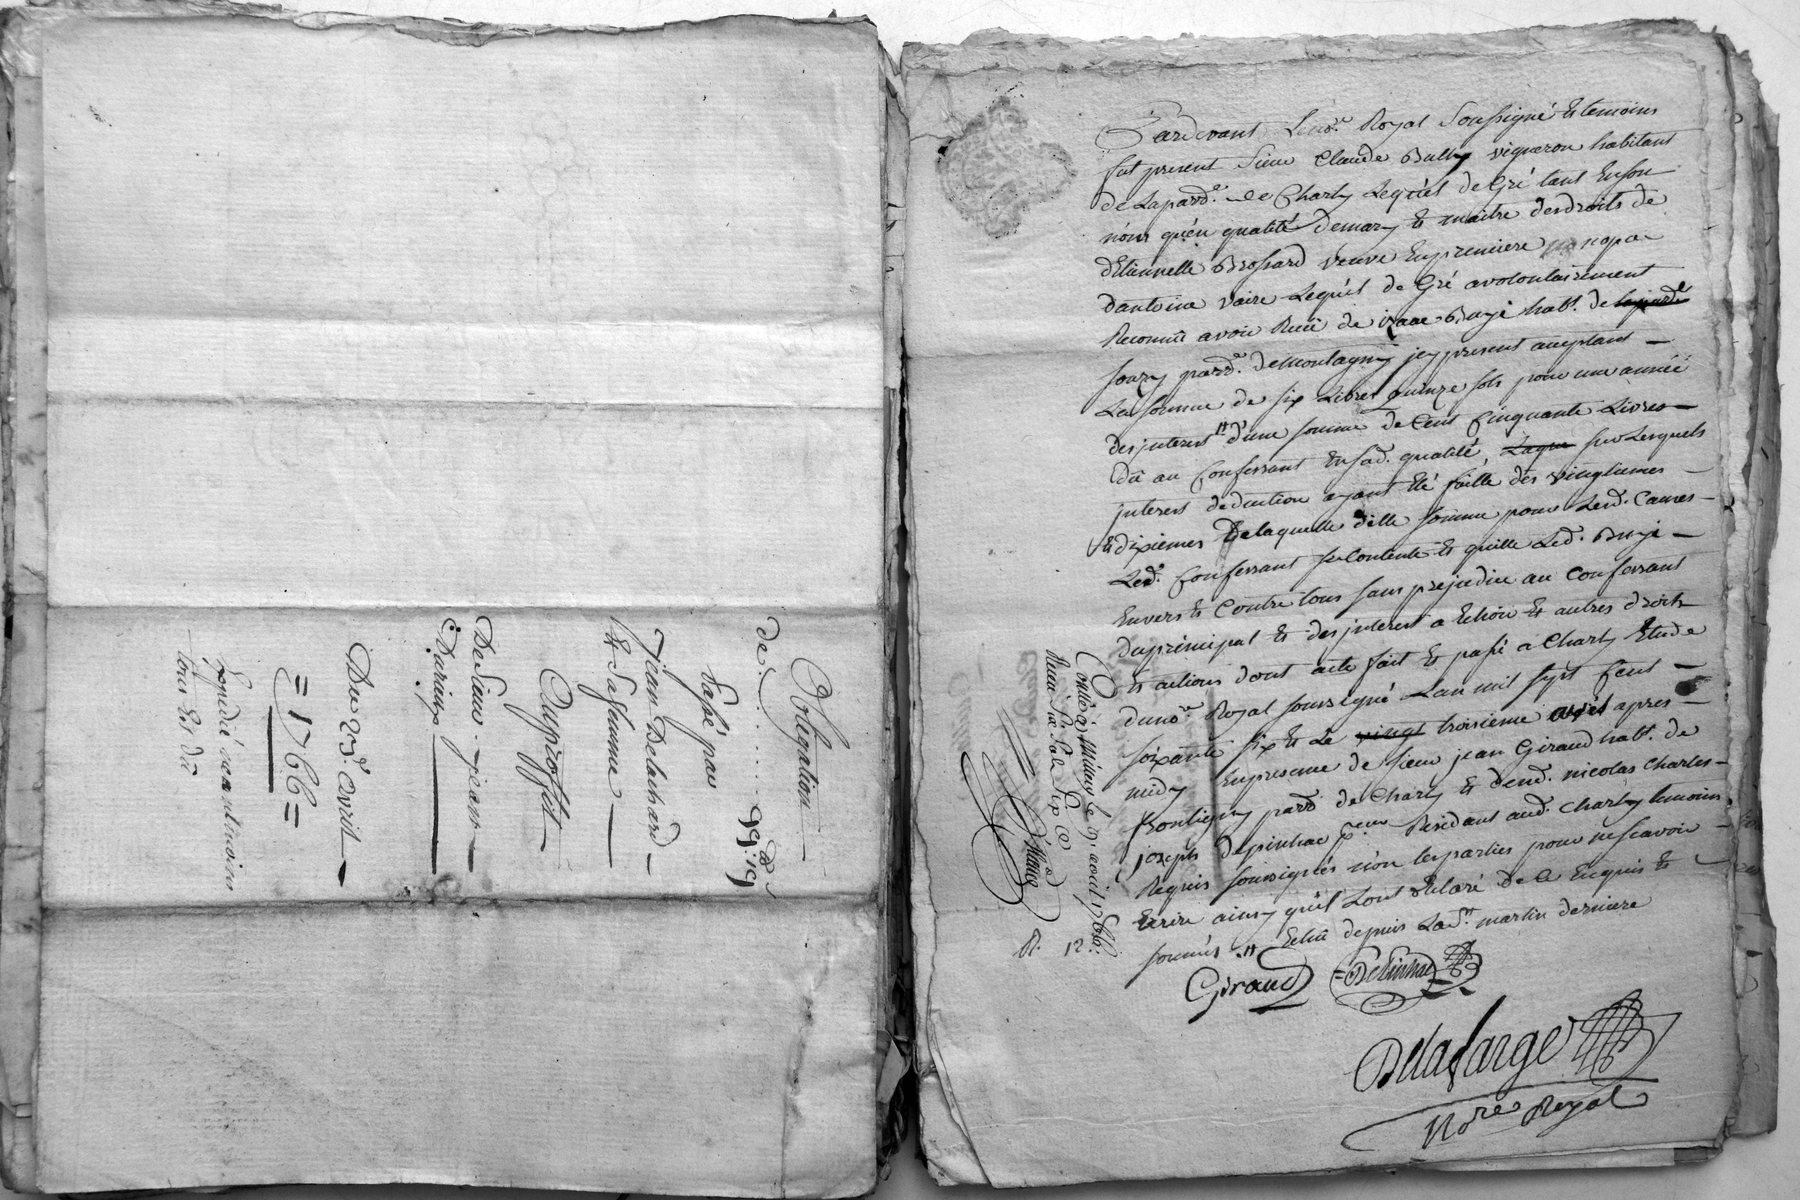 Obligation
de . . . . . . . . 99:19
Passé par
jean Delachard
Et Sa femme
Au proffit
De Sieur jean
Du 23e. Avril
= 1766 =
Pardevant Le no.re Royal Soussigné Et temoins
fut present Sieur Claude Bully vigneron habitant
de La parr.e de Charly Lequel de Gré tant En son
nom qu'en qualité demary Et maitre des droits de
d'Etiennette Brossard veuve En premiere nopce
d'antoine vaire Lequel de Gré avolontairement
Reconnû avoir Reçu de isaac Buyé hab.t de
Sourzy parr.e demontagny jcy present aceptant
La somme de six Livres quinze sols pour une année
des jnterest # d'une somme de Cent Cinquante Livres
Dû au Confessant En sad. qualité, Laque sur Lesquels
jnterest deduction ayant Eté faitte des vingtiemes
Et dixiemes De laquelle d'elle somme pour Lesd. Causes
Led. Confessant se Contente Et quitte Led. Buyé
Envers Et Contre tous sans prejudice au Confessant
du principal Et des jnterest a Echoir Et autres droits
Et actions dont acte fait Et passé a Charly Etude
du no.re Royal soussigné Lan mil sept Cent
soixante six Et Le vingt troisieme avril apres
midy En presence de sieur jean Giraud hab.t de
frontigny parr.e de Charly Et de nicolas Charles
joseph Depinhac Residant aud. Charly temoins
Requis soussignés non les parties pour ne scavoir
Ecrire ainsy qu'il Lont declaré de Ce Enquis Et
sommés # Echû depuis La S.t martin derniere
Conllé à Millery le 9 avril 1766
Reçu
R. 12
Giraud
Depinhac
Delafarge
No.re Royal